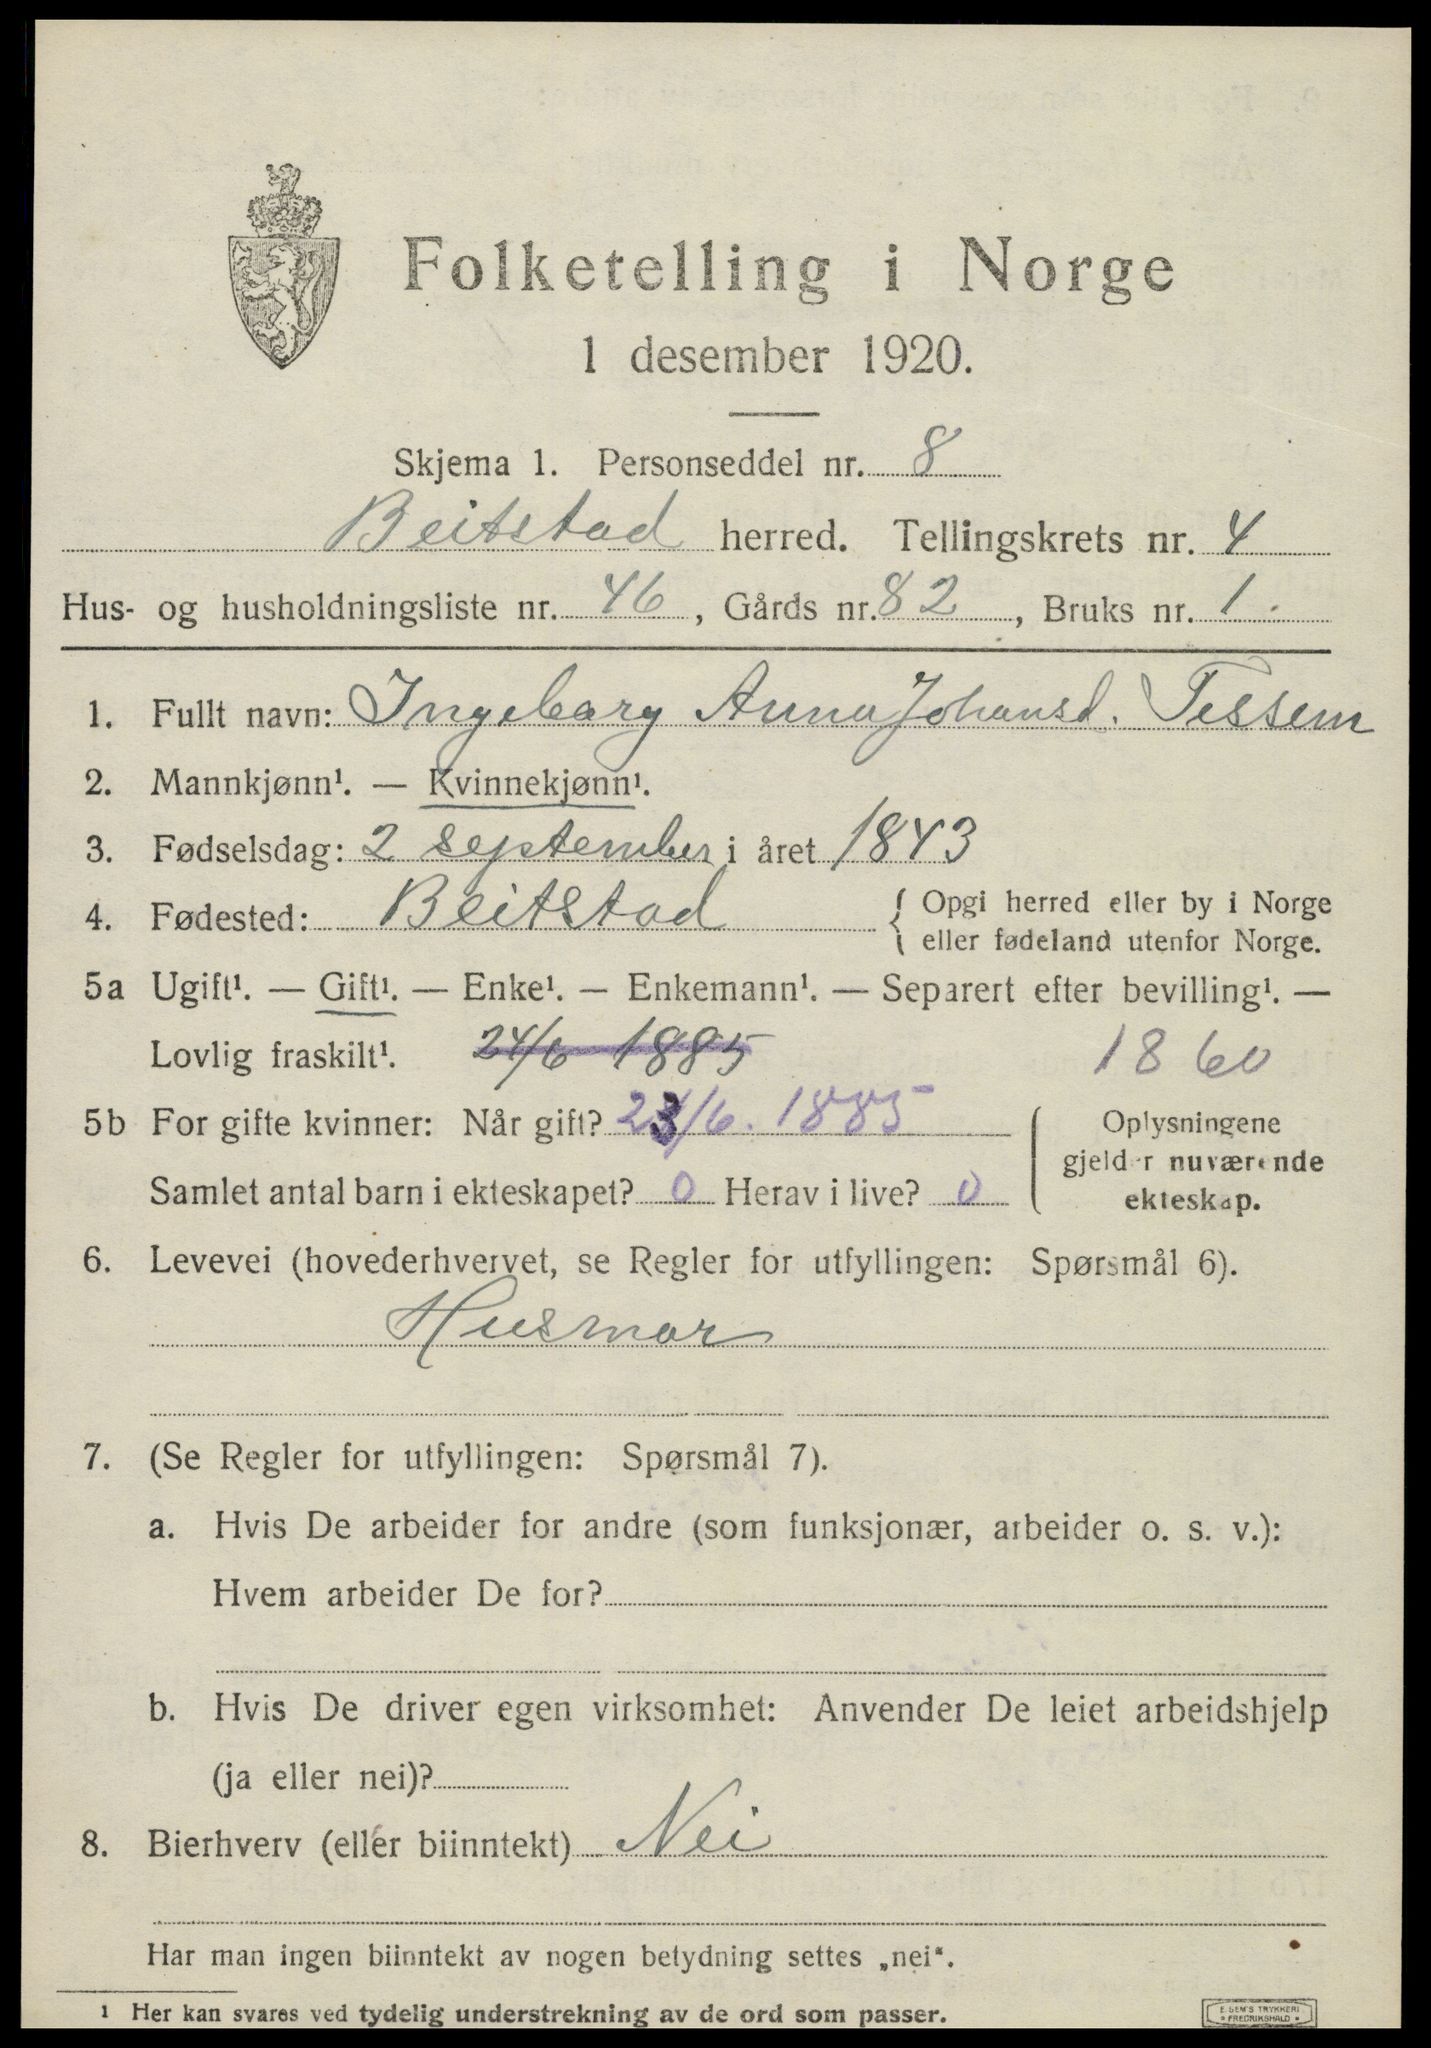 Folketelling i Norge
1 desember 1920.
Skjema 1. Personseddel nr. 8
Beitstad herred. Tellingskrets nr. 4
Hus- og husholdningsliste nr. 46, Gårds nr. 82, Bruks nr. 1.
1. Fullt navn: Ingebarg Anna Johansd. Tessem
2. Mannkjønn¹. — Kvinnekjønn¹.
3. Fødselsdag: 2 september i året 1843
4. Fødested: Beitstad { Opgi herred eller by i Norge
eller fødeland utenfor Norge.
5a Ugift¹. — Gift¹. — Enke¹. — Enkemann¹. — Separert efter bevilling¹. —
Lovlig fraskilt¹. 24/6 1885 1860
5b For gifte kvinner: Når gift? 23/6. 1885 { Oplysningene
gjelder nuværende
Samlet antal barn i ekteskapet? 0 Herav i live? 0 ekteskap.
6. Levevei (hovederhvervet, se Regler for utfyllingen: Spørsmål 6).
Husmor
7. (Se Regler for utfyllingen: Spørsmål 7).
a. Hvis De arbeider for andre (som funksjonær, arbeider o. s. v.):
Hvem arbeider De for?
b. Hvis De driver egen virksomhet: Anvender De leiet arbeidshjelp
(ja eller nei)?
8. Bierhverv (eller biinntekt) Nei
Har man ingen biinntekt av nogen betydning settes „nei“.
¹ Her kan svares ved tydelig understrekning av de ord som passer.
E. SEM'S TRYKKERI
FREDRIKSHALD